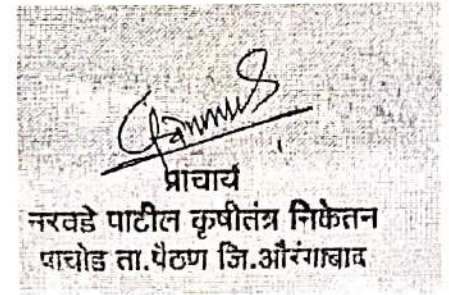 प्राचार्य
नरवडे पाटील कृषीतंत्र निकेतन
पाचोड ता.पैठण जि.औरंगाबाद